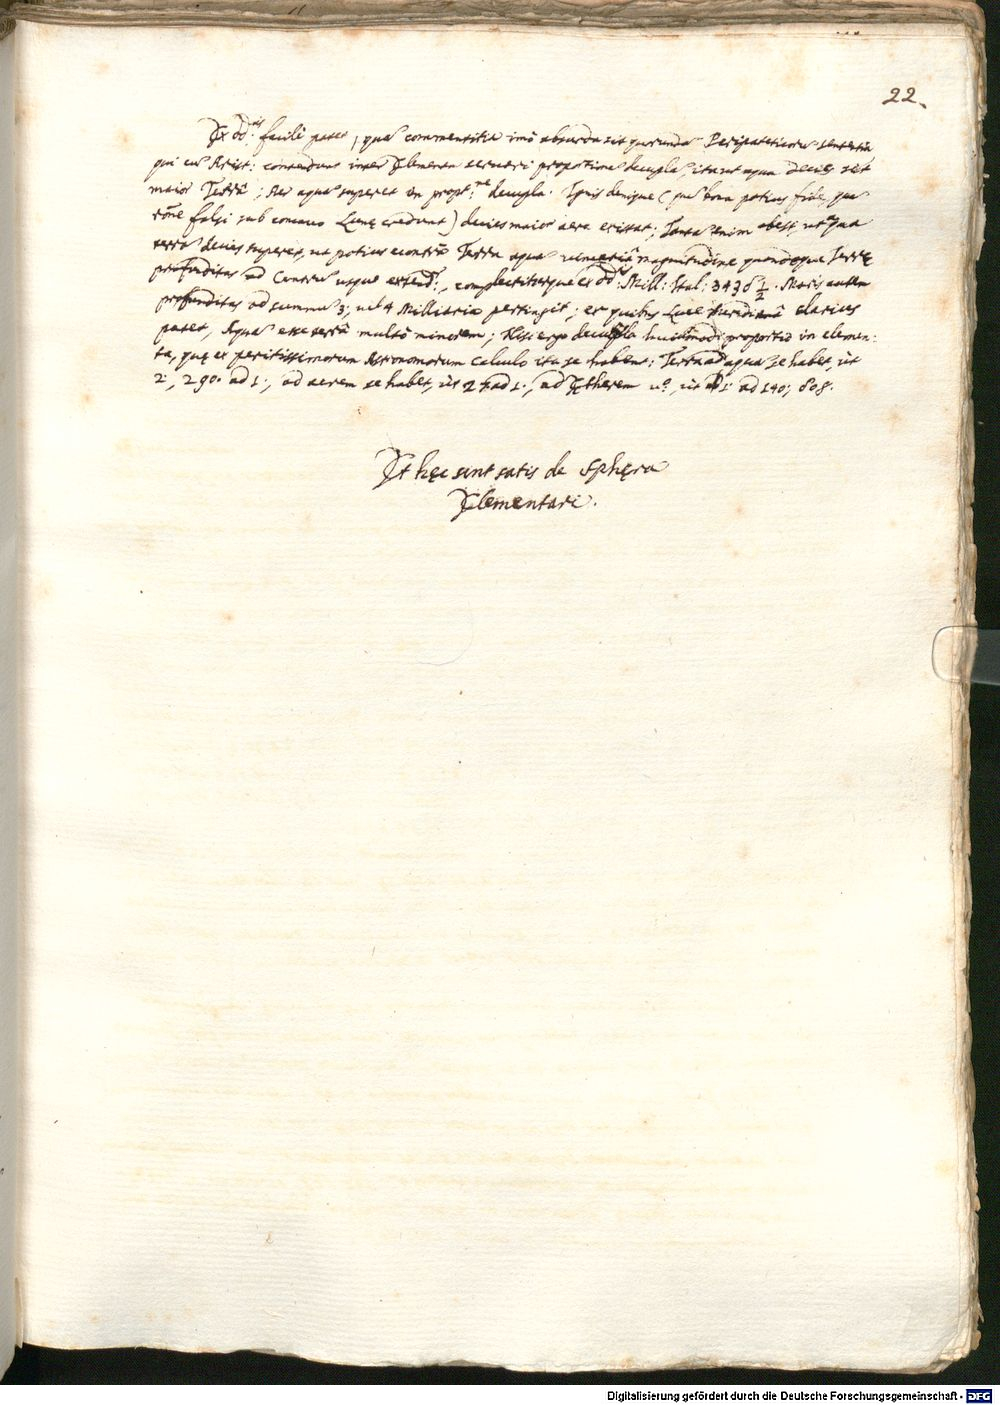 22.
Ex dd.is facile patet, quã commentitia imò absurda sit quorundã Peripateticorũ sententia
qui cũ Arist: contendunt inter Elementa servari proportionẽ decuplã, ita ut aqua decies sit
maior Terrâ; Aer aquã superet in propt:ne decupla. Ignis denique (quẽ bona potius fide, quã
rõne falsi sub concavo Lunę credunt) decies maior aere existat; Tantũ enim abest, ut aqua
terrã decies superet, ut potius econtra Terra aquã magnitudine quandoque Terrę
profunditas ad Centrũ usque extend.r, complectiturque ex dd.is Mill: Ital: 3436 1/2. Maris autem
profunditas ad summũ 3, vel 4 Milliaria pertingit; ex quibus Luce meridianâ clarius
patet, Aquã esse terrâ multò minorem; Nec ergo decupla huiusmodi proportio in elemen:
ta, quę ex peritissimorum Astronomorum calculo ita se habent: Terra ad aquã se habet, ut
2, 290. ad 1., ad aerem se habet, ut ad 1., ad Ętherem v.o, ut 1 ad 140, 808.
Et hęc sint satis de Sphęra
Elementari.
Digitalisierung gefördert durch die Deutsche Forschungsgemeinschaft - DFG